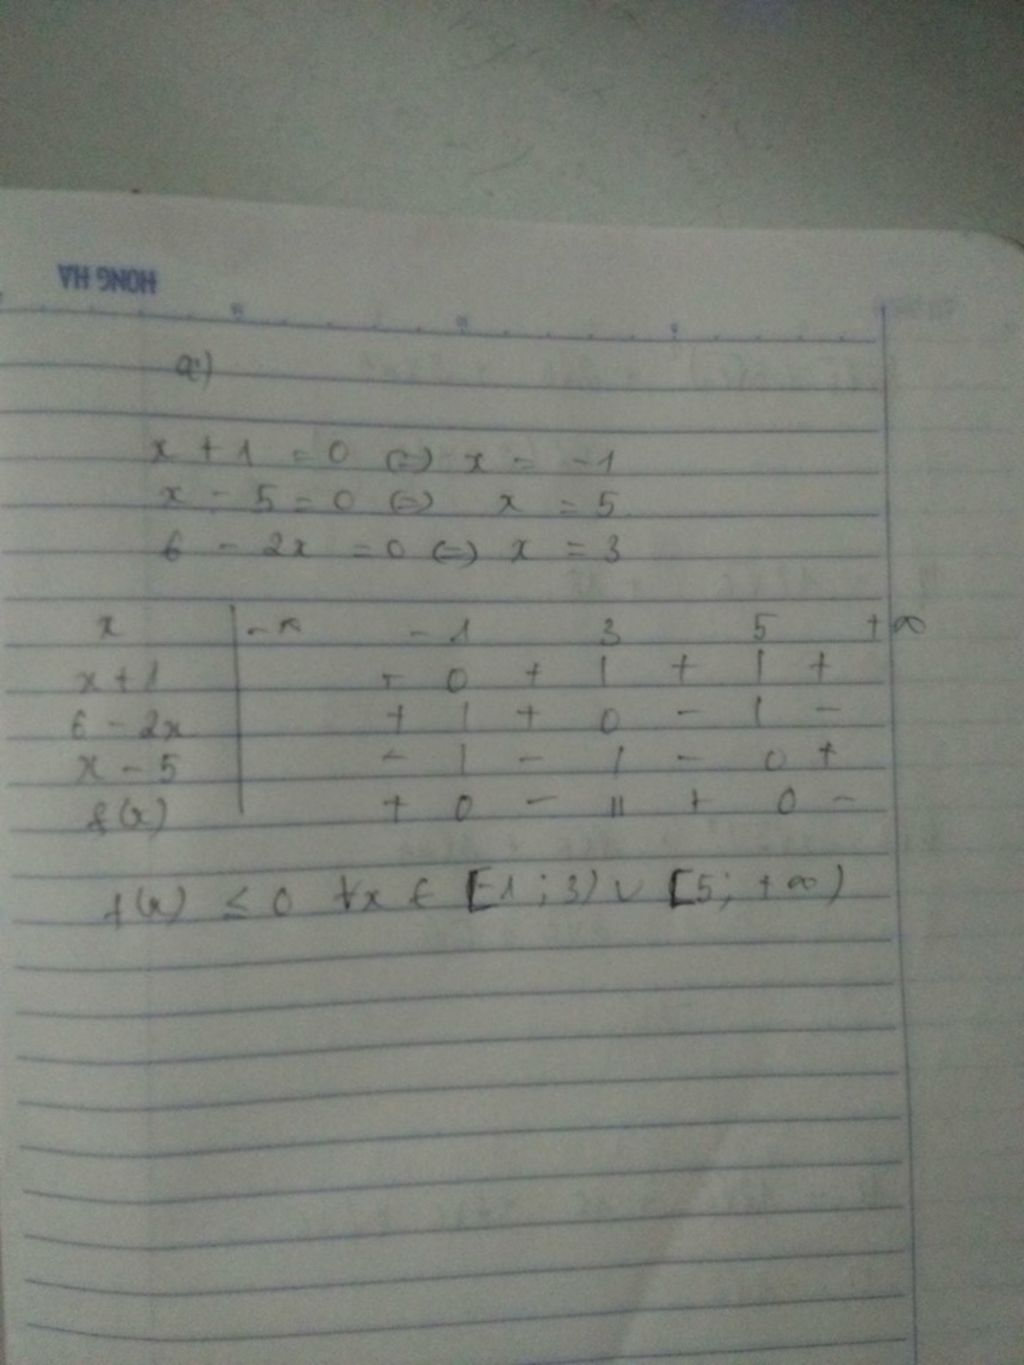 HONG HA
a)
x + 1 = 0 (=) x = -1
x - 5 = 0 (=) x = 5
6 - 2x = 0 (=) x = 3
x -∞ -1 3 5 +∞
x + 1 - 0 + | + | +
6 - 2x + | + 0 - | -
x - 5 - | - | - 0 +
f(x) + 0 - || + 0 -
f(x) ≤ 0 ∀x ∈ [-1 ; 3) ∪ [5; +∞)